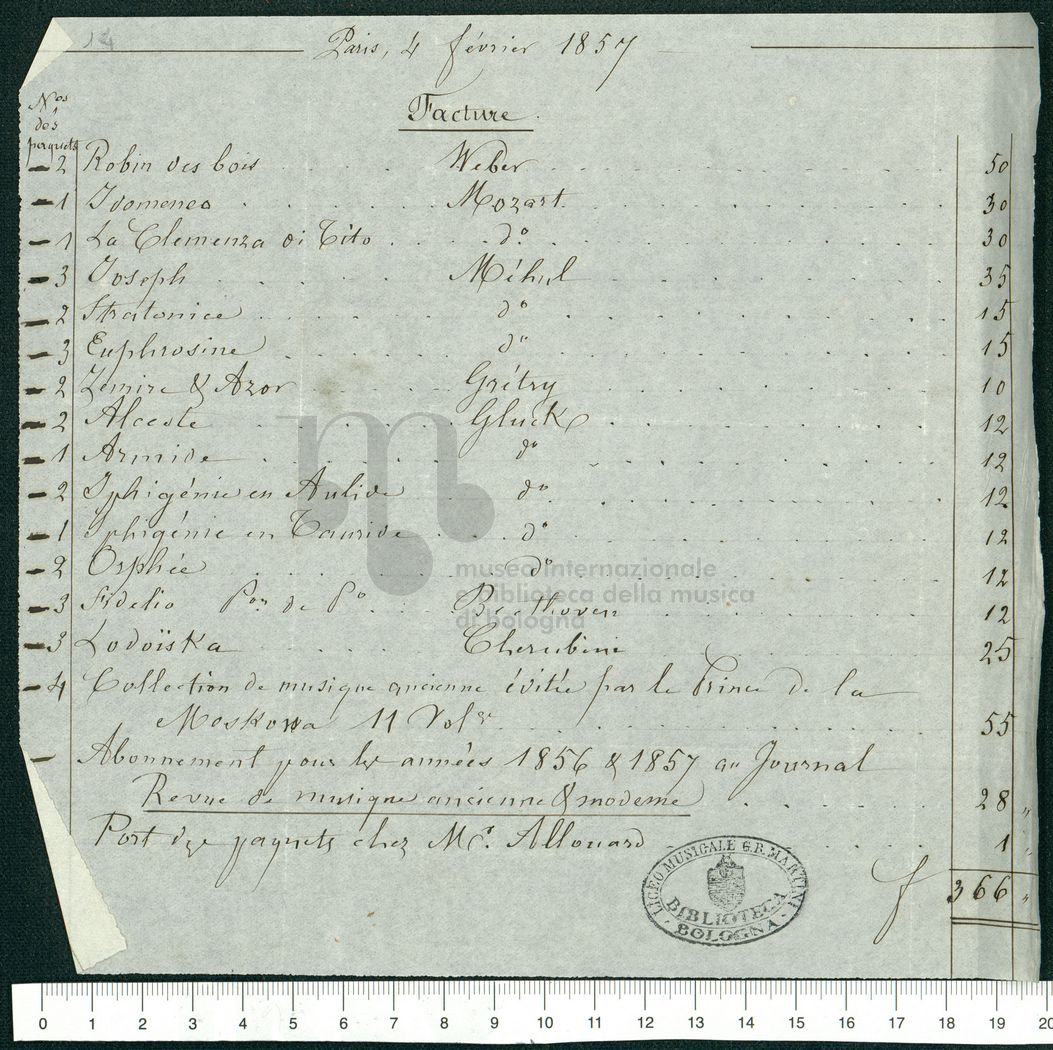 14
Paris, 4 février 1857
Facture
Nos
des
paquets
2 Robin des bois . . . Weber 50
1 Idomeneo . . . Mozart 30
1 La Clemenza di Tito . . . do 30
3 Joseph . . . Méhul 35
2 Stratonice . . . do 15
3 Euphrosine . . . do 15
2 Zémire & Azor Grétry 10
2 Alceste . . . Gluck 12
1 Armide . . . do 12
2 Iphigénie en Aulide do 12
1 Iphigénie en Tauride . . . do 12
2 Orphée . . . do 12
3 Fidelio Pon de Po . . . Beethoven 12
3 Lodoïska . . . Cherubini 25
4 Collection de musique ancienne éditée par le Prince de la
Moskowa 11 Vols . . . 55
Abonnement pour les années 1856 & 1857 au Journal
Revue de musique ancienne & moderne . . . 28 "
Port des paquets chez Mr. Allouard . . . 1 "
f 366 "
LICEO MUSICALE G.B. MARTINI
BIBLIOTECA
BOLOGNA
museo internazionale
e biblioteca della musica
di bologna
0 1 2 3 4 5 6 7 8 9 10 11 12 13 14 15 16 17 18 19 20